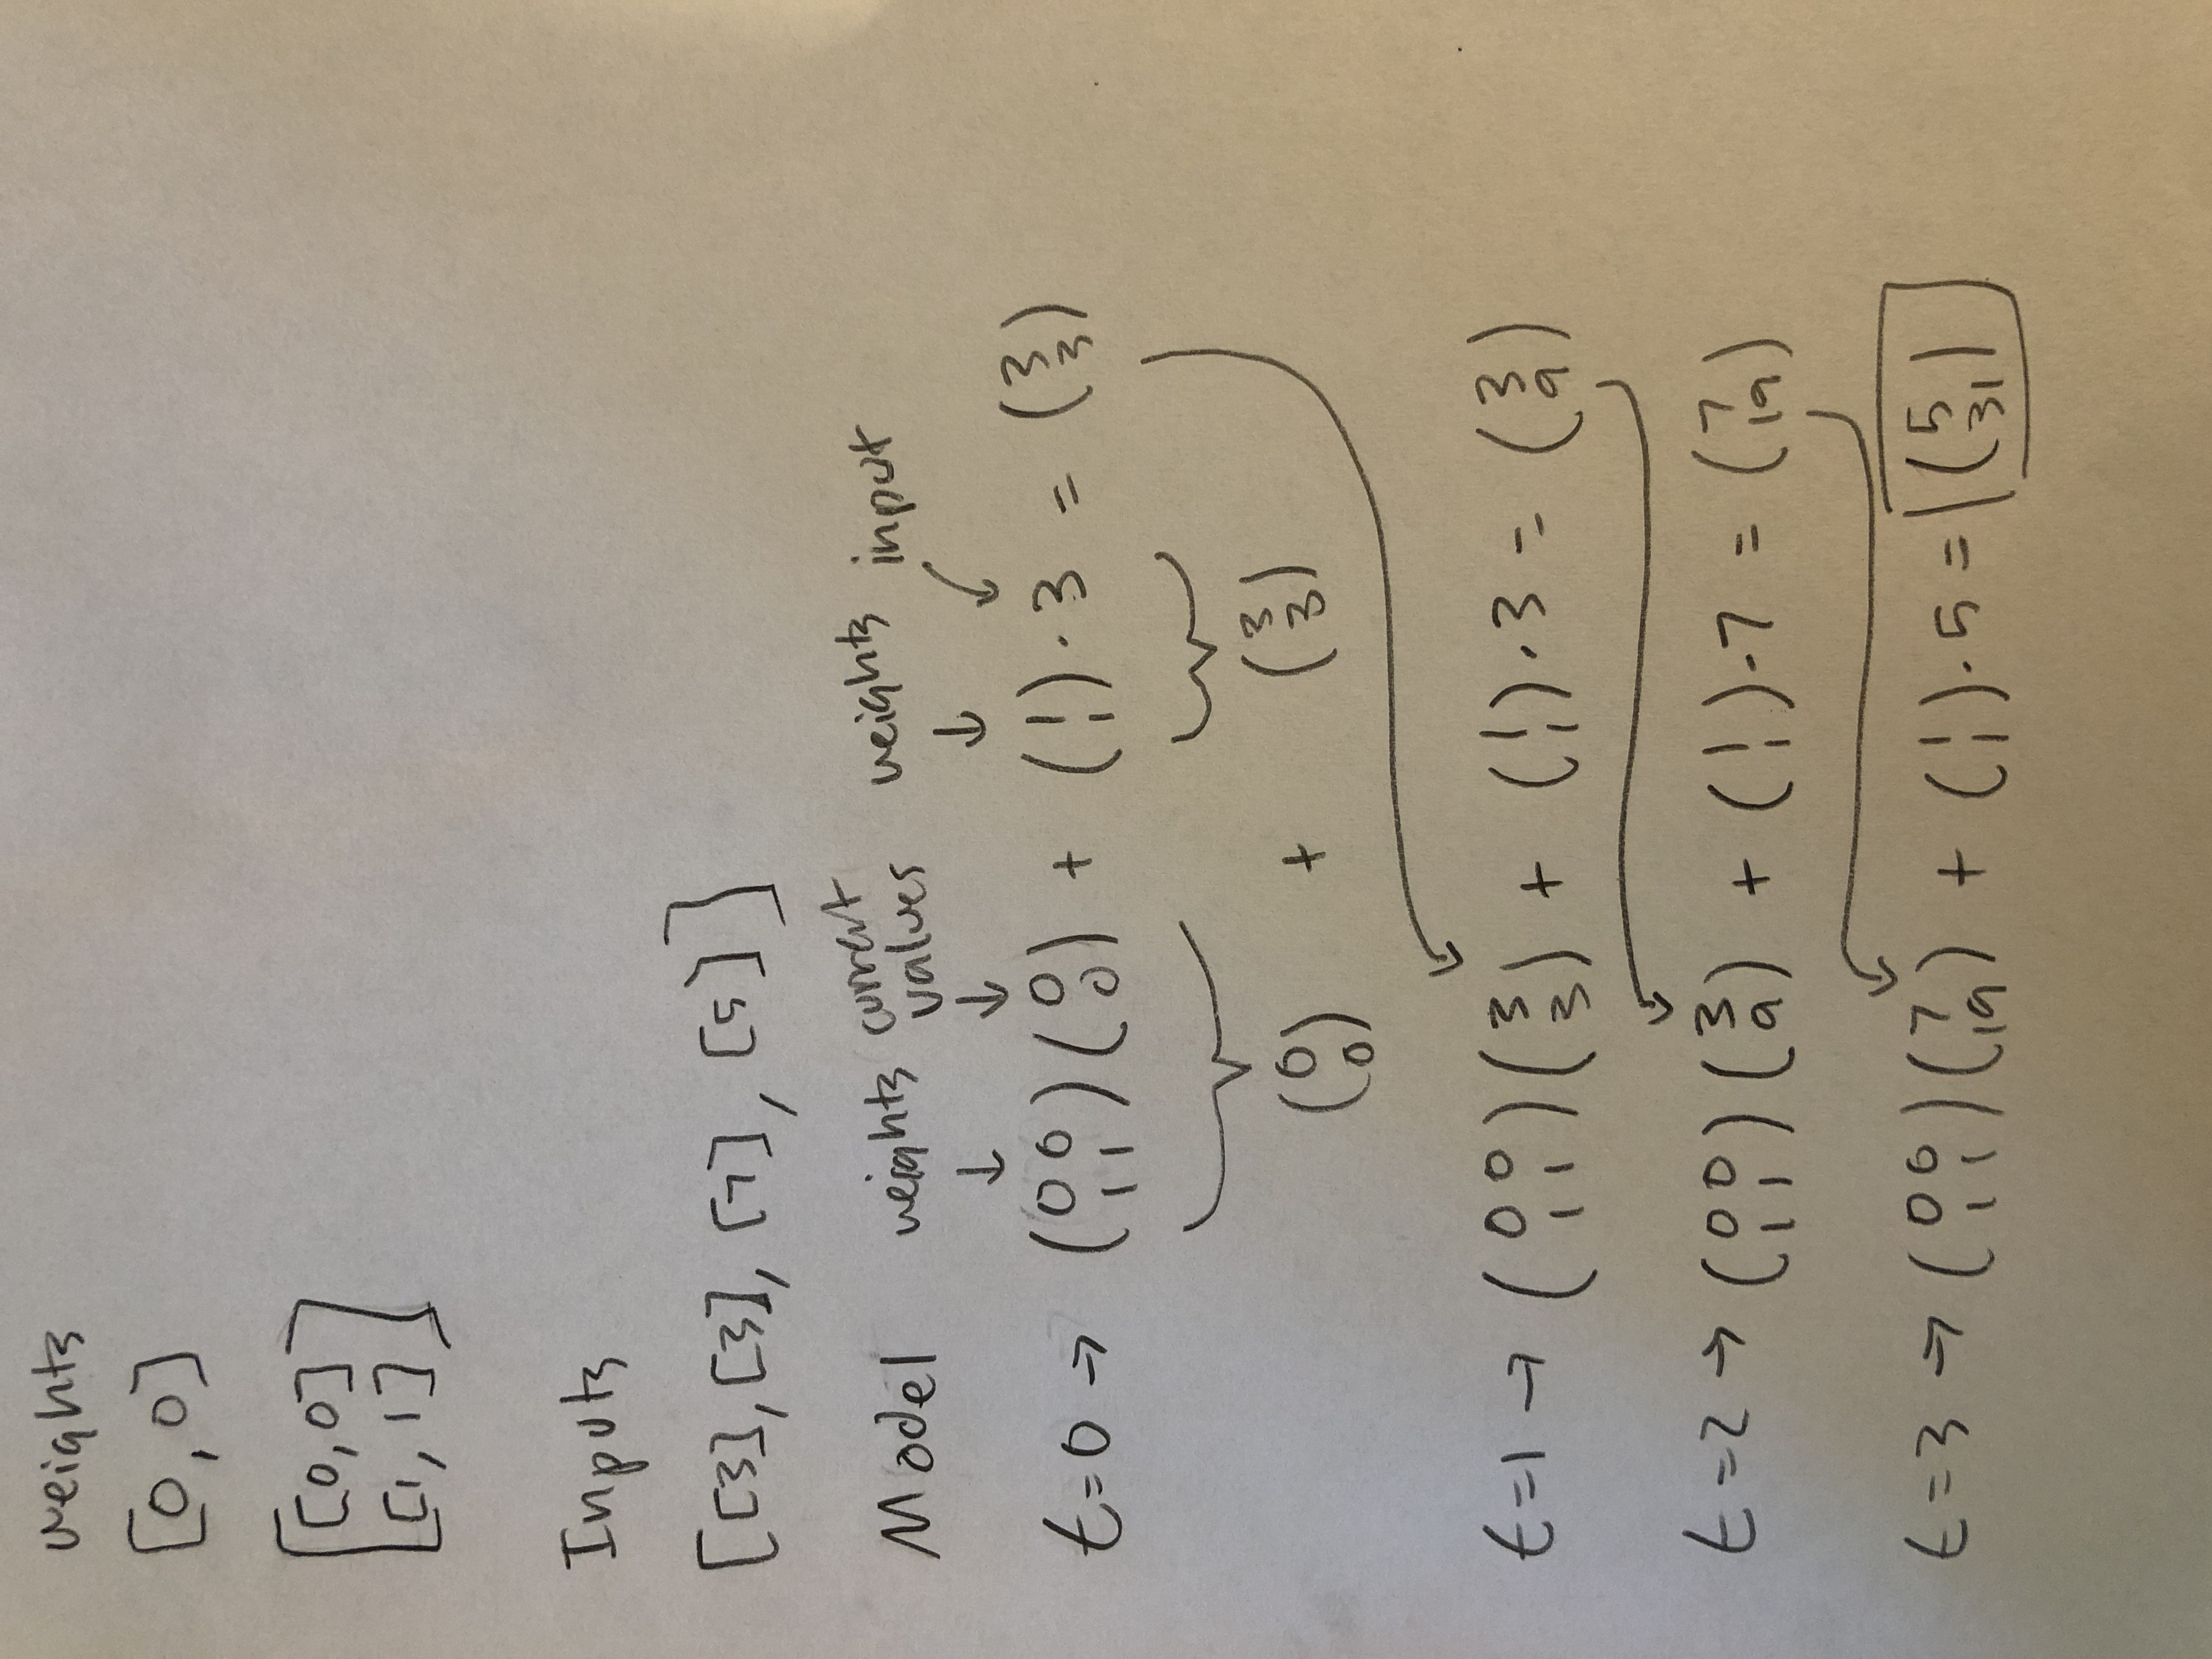 weights
[0, 0]
[[0, 0]
[1, 1]]
Inputs
[[3], [3], [7], [5]]
Model weights current values weights input
t=0 → (0 0 / 1 1)(0 / 0) + (1 / 1) · 3 = (3 / 3)
(0 / 0) + (3 / 3)
t=1 → (0 0 / 1 1)(3 / 3) + (1 / 1) · 3 = (3 / 9)
t=2 → (0 0 / 1 1)(3 / 9) + (1 / 1) · 7 = (7 / 19)
t=3 → (0 0 / 1 1)(7 / 19) + (1 / 1) · 5 = (5 / 31)